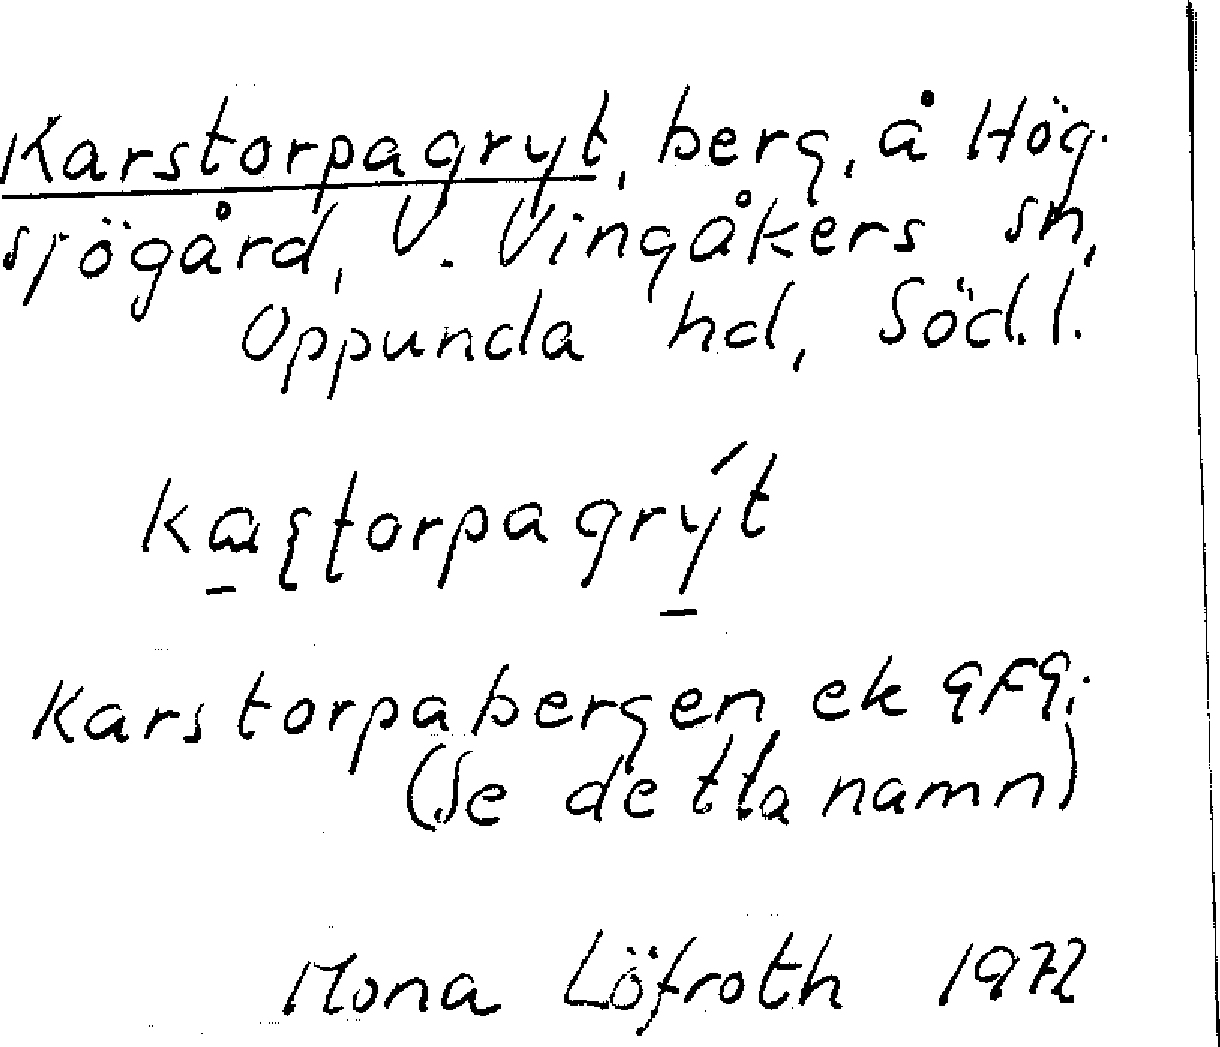 Karstorpagryt, berg, å Hög-
sjögård, V. Vingåkers sn,
Oppunda hd, Södl.
Karstorpabergen ek 9F9i
(Se detta namn)
Mona Löfroth 1972